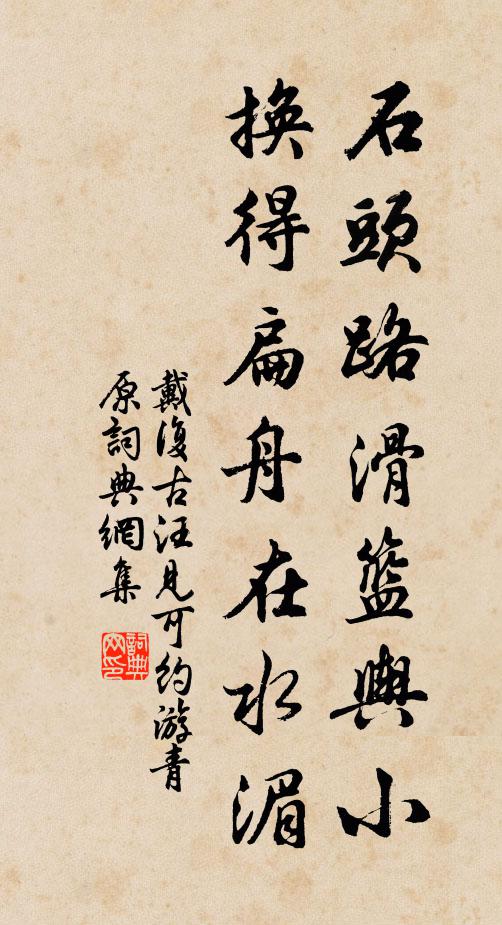 石頭路滑籃輿小
換得扁舟在水湄
戴復古汪見可約游青
原詞典網集
詞典網印